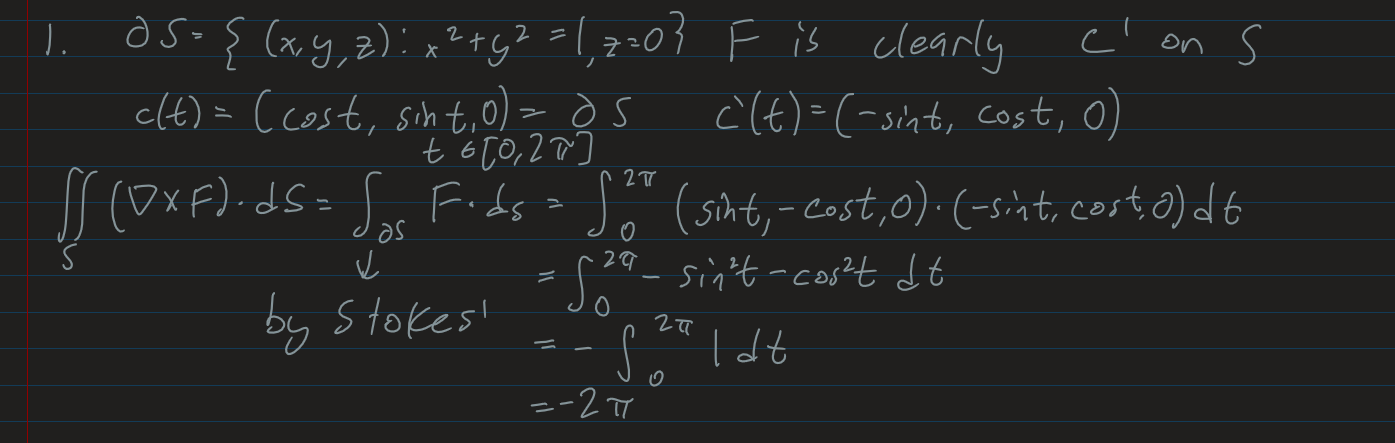 1. ∂S = { (x, y, z) : x² + y² = 1, z = 0 } F is clearly C¹ on S
c(t) = (cost, sint, 0) = ∂S c'(t) = (-sint, cost, 0)
t ∈ [0, 2π]
∬_S (∇×F)·dS = ∫_∂S F·ds = ∫_0^2π (sint, -cost, 0)·(-sint, cost, 0) dt
= ∫_0^2π -sin²t - cos²t dt
↓
by Stokes'
= -∫_0^2π 1 dt
= -2π